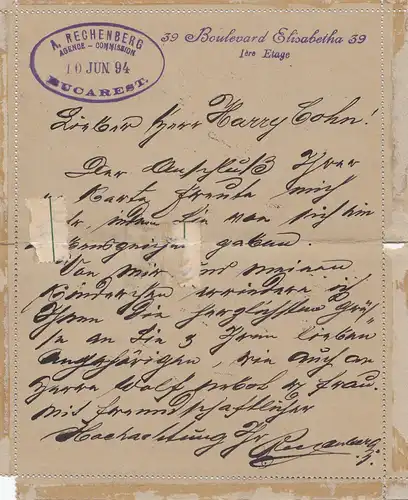 A. RECHENBERG
AGENCE - COMMISSION
10 JUN. 94
BUCAREST.
39 Boulevard Elisabetha 39
1ère Etage
Lieber Herr Harry Cohn!
Der Anschluß Ihrer
Karte freute mich
indem Sie von sich ein
Lebenszeichen gaben.
Von mir und meinen
Kinderchen erwidere ich
Ihnen die herzlichsten Grüs-
se an Sie & Ihren lieben
Angehörigen, wie auch an
Herrn Wolf nebst Frau.
Mit freundschaftlicher
Hochachtung Ihr Rechenberg